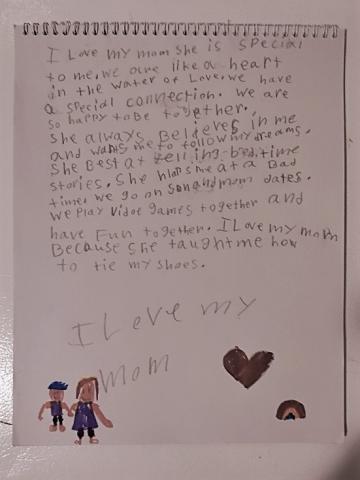 I Love my mom she is special
to me. we are like a heart
in the water of Love. we have
a special connection. we are
so happy to be together.
She always Beleeves in me
and wants me to follow my dreams.
She Best at telling bed time
stories. She hlaps me at a Bad
time. we go on son and mom dates.
we play video games together and
have Fun together. I Love my mom
Because she taught me how
to tie my shoes.
I Love my
mom